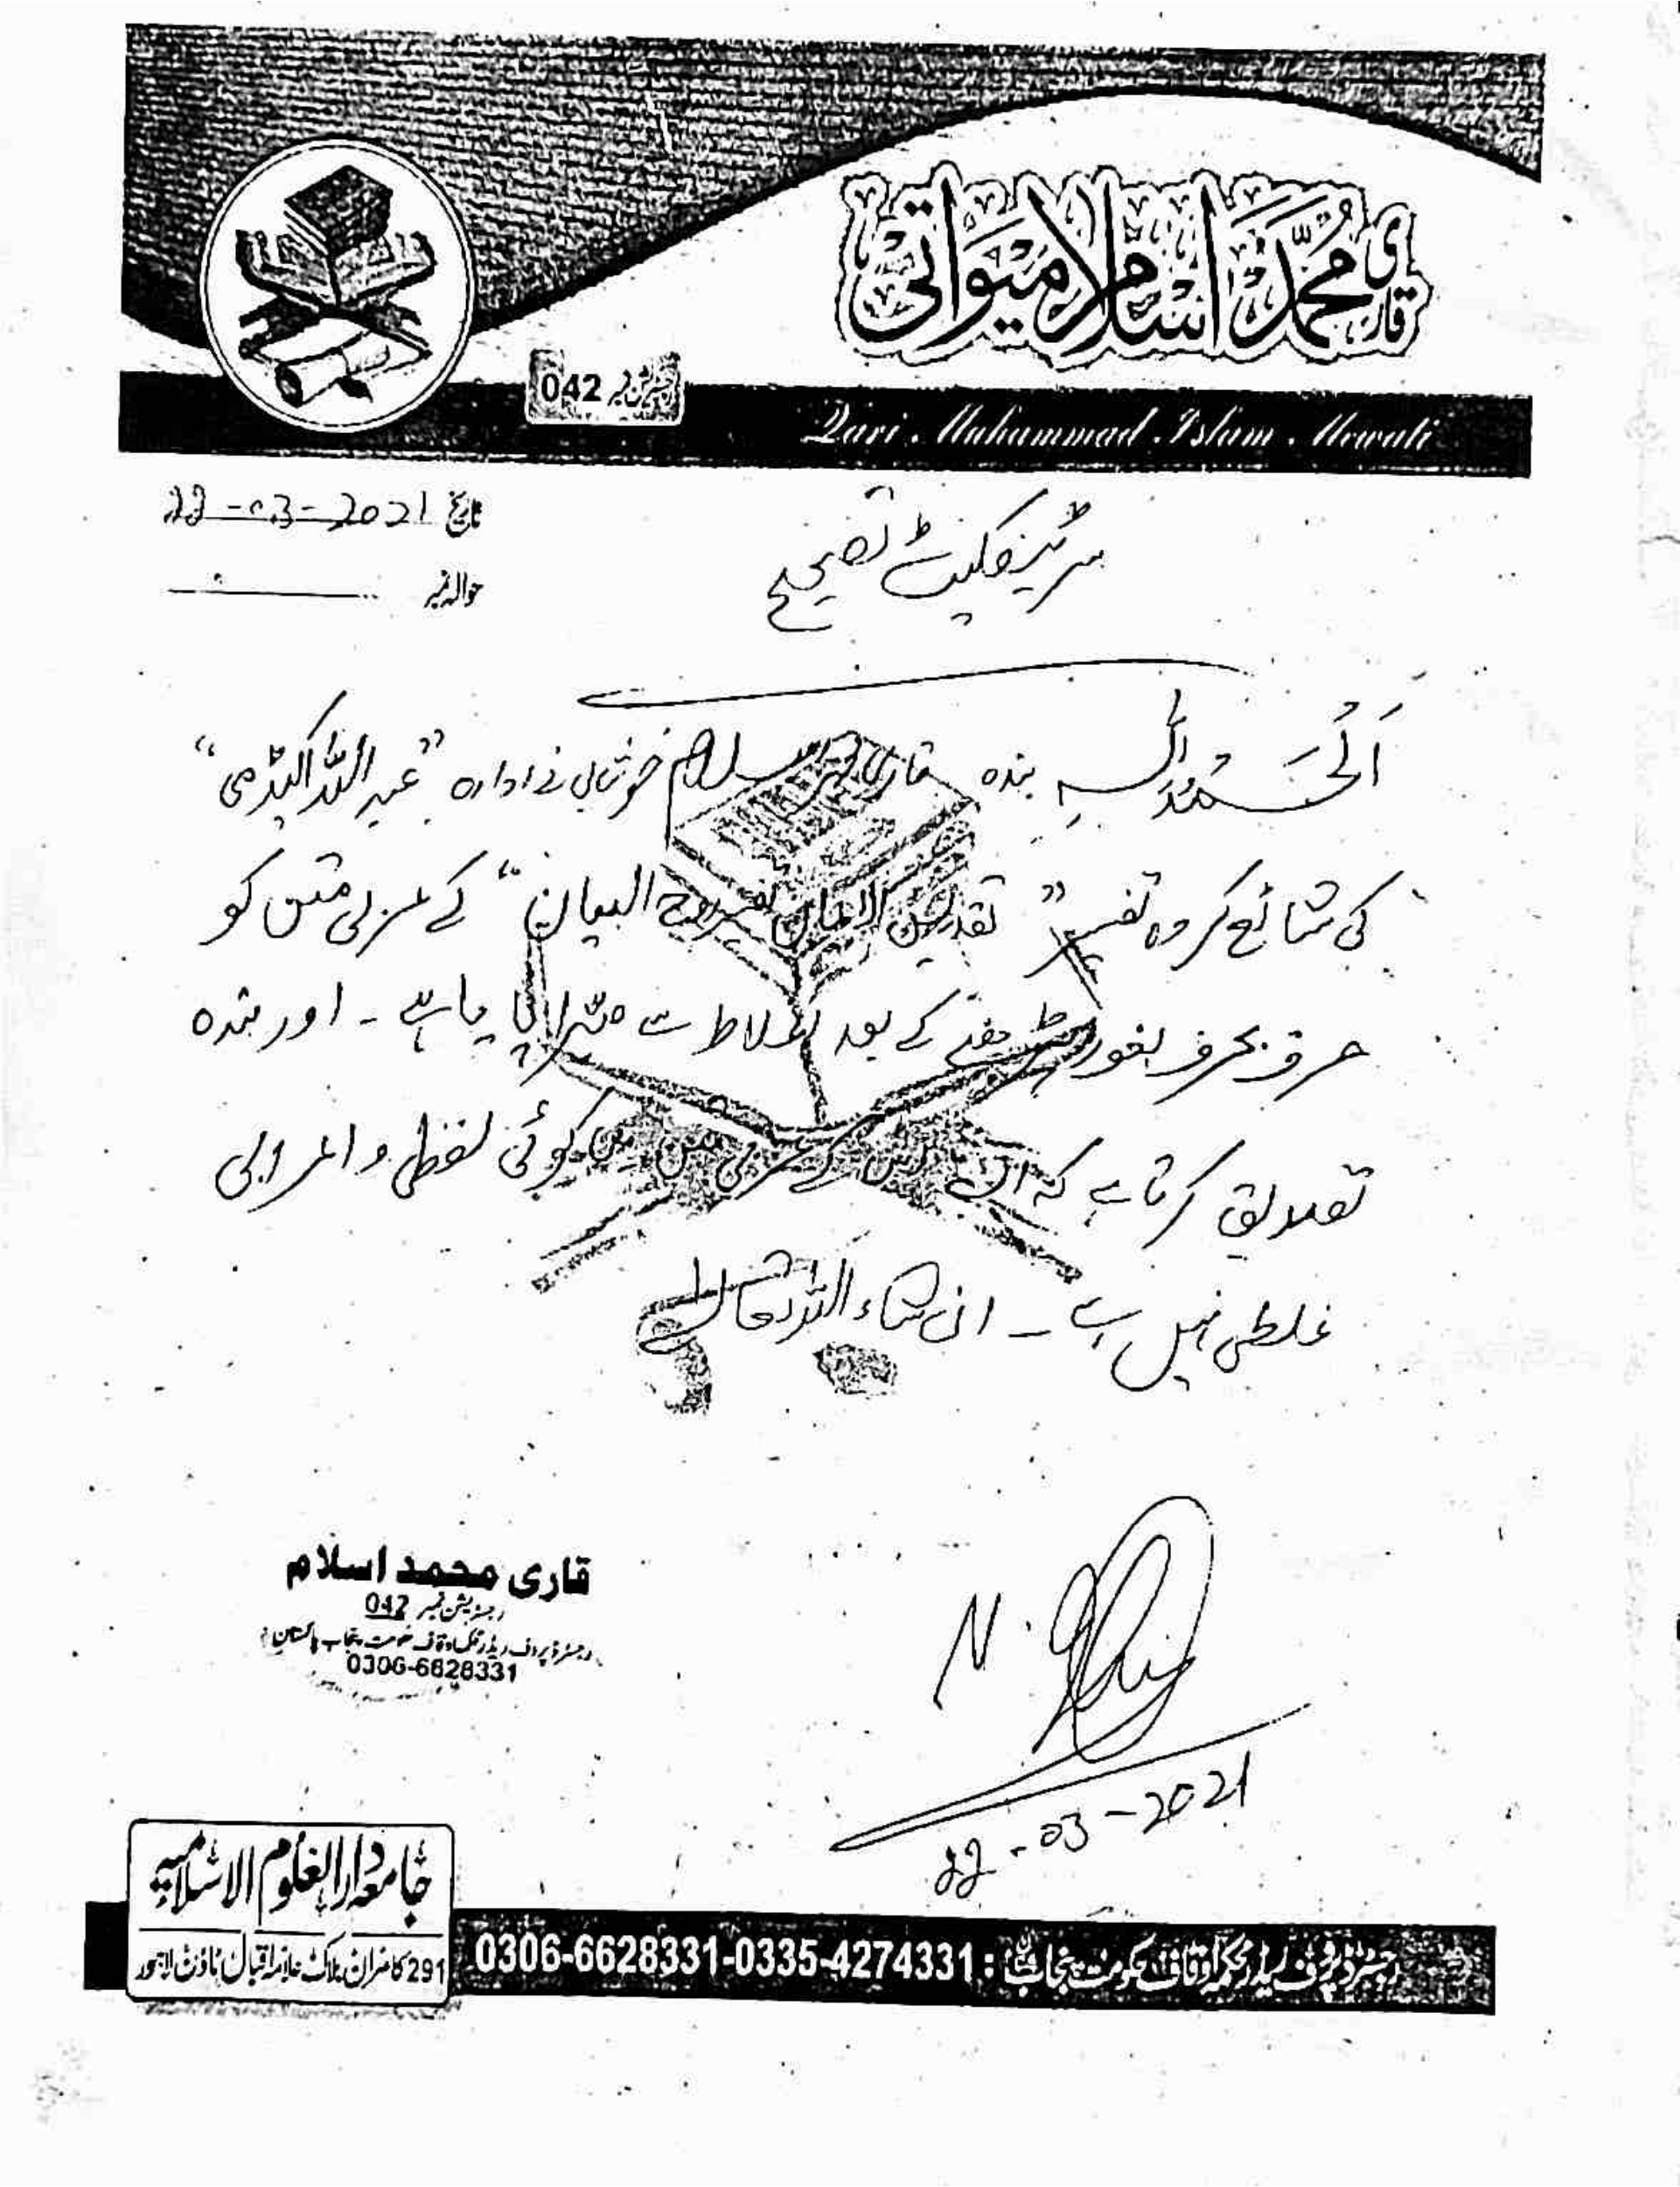 قاری محمد اسلام میواتی
رجسٹریشن نمبر 042
Qari Muhammad Islam Mewati
تاریخ 22-03-2021
حوالہ نمبر
سرٹیفکیٹ تصحیح
اَلْحَمْدُ لِلّٰہِ بندہ قاری محمد اسلام خوشابی نے ادارہ "عبد اللہ اکیڈمی"
کی شائع کردہ تفسیر "تقدیس الایمان تفسیر روح البیان" کے عربی متن کو
حرف بحرف بغور پڑھنے کے بعد اغلاط سے مبرا پایا ہے ۔ اور بندہ
تصدیق کرتا ہے کہ اس کے عربی متن میں کوئی لفظی و اعرابی
غلطی نہیں ہے ۔ ان شاء اللہ تعالیٰ
قاری محمد اسلام
رجسٹریشن نمبر 042
رجسٹرڈ پروف ریڈر محکمہ اوقاف حکومت پنجاب پاکستان
0306-6628331
22-03-2021
جامعہ دارالعلوم الاسلامیہ
291 کامران بلاک علامہ اقبال ٹاؤن لاہور
رجسٹرڈ پروف ریڈر محکمہ اوقاف حکومت پنجاب پاکستان : 0306-6628331-0335-4274331